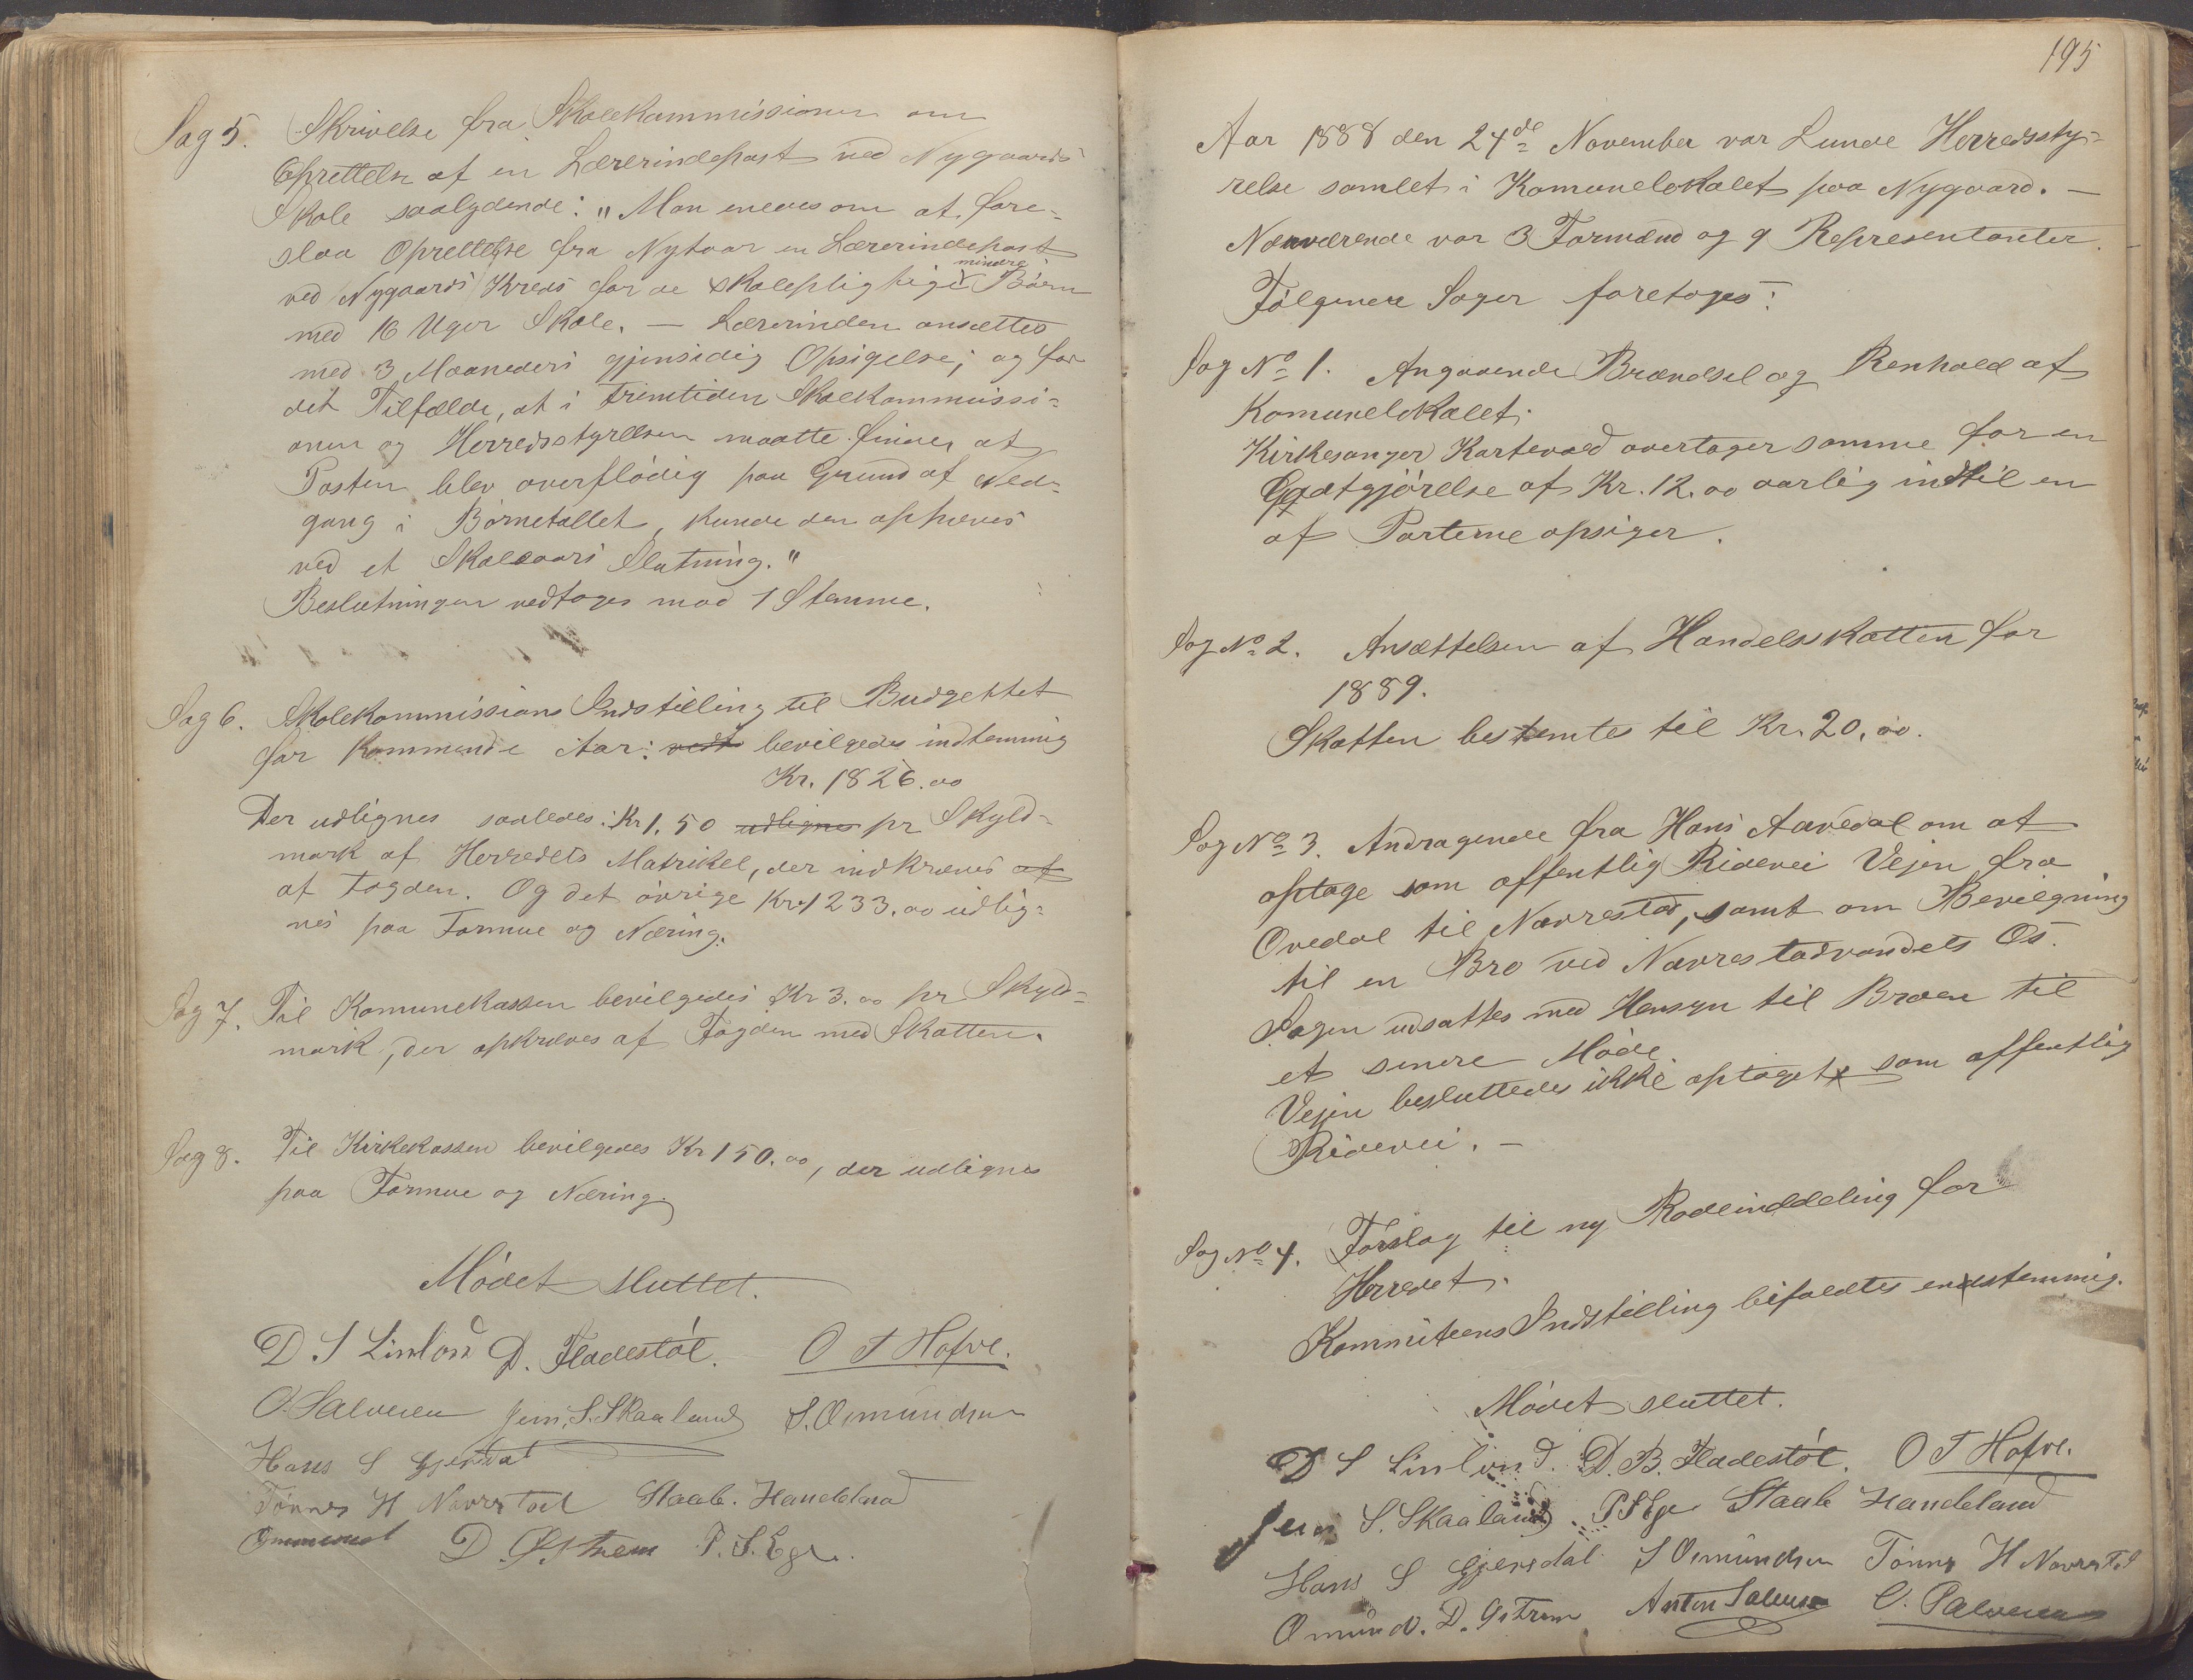 Sag 5. Skrivelse fra Skolekommissionen om
Oprettelse af en Lærerindepost ved Nygaards
Skole saalydende: "Man enedes om at fore-
slaa Oprettelse fra Nytaar en Lærerindepost
ved Nygaards Kreds for de skolepligtige mindre Børn
med 16 Uger Skole. — Lærerinden ansættes
med 3 Maaneders gjensidig Opsigelse; og for
det Tilfælde, at i Fremtiden Skolekommissi-
onen og Herredsstyrelsen maatte finde, at
Posten blev overflödig paa Grund af Ned-
gang i Börnetallet, kunde den ophæves
ved et Skoleaars Slutning."
Beslutningen vedtoges mod 1 Stemme.
Sag 6. Skolekommissions Indstilling til Budgettet
for kommende Aar: vedto bevilgedes indstemmig
Kr. 1826.00
Der udlignes saaledes: Kr 1,50 udlignes pr Skyld-
mark af Herredets Matrikel, der indkræves af
af Fogden. Og det övrige Kr. 1233.00 udlig-
nes paa Formue og Næring.
Sag 7. Til Komunekassen bevilgedes Kr 3.00 pr Skyld-
mark, der opkræves af Fogden med Skatten.
Sag 8. Til Kirkekassen bevilgedes Kr 150.00, der udlignes
paa Formue og Næring.
Mödet sluttet.
D S Linland D. Fladestöl. O T Hofve.
O. Salvesen Jens. S. Skaaland S. Osmundsen
Hans S Gjersdal
Tönnes H Navrestad Staale. Handeland
Ommund D. Østrem P. S. Ege.
195
Aar 1888 den 24de November var Lunde Herredssty-
relse samlet i Komunelokalet paa Nygaard. —
Nærværende var 3 Formænd og 9 Representanter.
Fölgende Sager foretoges:
Sag No 1. Angaaende Brændsel og Renhold af
Komunelokalet.
Kirkesanger Kartevold overtager samme for en
Godtgjörelse af Kr. 12.00 aarlig indtil en
af Parterne opsiger.
Sag No 2. Ansættelsen af Handelsskatten for
1889.
Skatten bestemtes til Kr. 20,00.
Sag No 3. Andragende fra Hans Aavedal om at
optage som offentlig Ridevei Vejen fra
Ovedal til Navrestad, samt om Bevilgning
til en Bro ved Navrestadvandets Os.
Sagen udsattes med Hensyn til Broen til
et senere Möde.
Vejen besluttedes ikke optaget som offentlig
Ridevei. —
Sag No 4. Forslag til ny Rodeinddeling for
Herredet.
Kommiteens Indstilling bifaldtes enstemmig.
Mödet sluttet.
D S Linland. D. B. Fladestöl. O T Hofve.
Jens S. Skaaland. P S Ege Staale Handeland
Hans S Gjersdal S Osmundsen Tönnes H Navrestad
Omund. D. Østrem Anton Salvesen O. Salvesen